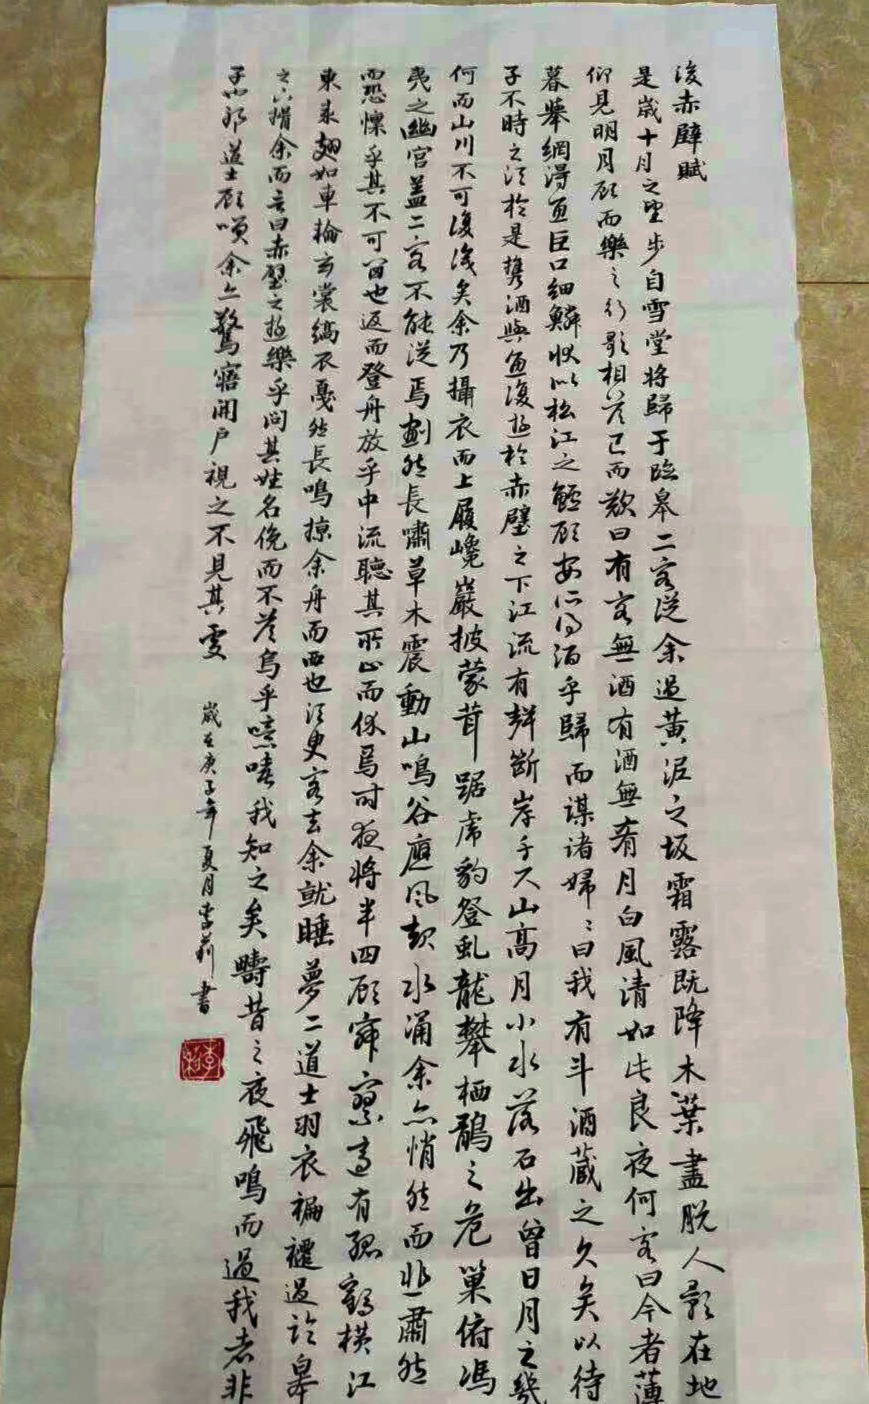 後赤壁賦
是歲十月之望步自雪堂將歸于臨皋二客從余過黃泥之坂霜露既降木葉盡脫人影在地
仰見明月顧而樂之行歌相答已而歎曰有客無酒有酒無肴月白風清如此良夜何客曰今者薄
暮舉網得魚巨口細鱗狀似松江之鱸顧安所得酒乎歸而謀諸婦〻曰我有斗酒藏之久矣以待
子不時之須於是攜酒與魚復遊於赤壁之下江流有聲斷岸千尺山高月小水落石出曾日月之幾
何而山川不可復識矣余乃攝衣而上履巉巖披蒙茸踞虎豹登虬龍攀栖鶻之危巢俯馮
夷之幽宮蓋二客不能從焉劃然長嘯草木震動山鳴谷應風起水涌余亦悄然而悲肅然
而恐懔乎其不可留也返而登舟放乎中流聽其所止而休焉時夜將半四顧寂寥適有孤鶴橫江
東來翅如車輪玄裳縞衣戛然長鳴掠余舟而西也須臾客去余就睡夢二道士羽衣褊襹過臨皋
之下揖余而言曰赤壁之遊樂乎問其姓名俛而不答烏乎噫嘻我知之矣疇昔之夜飛鳴而過我者非
子也耶道士顧嘆余亦驚寤開戶視之不見其處
歲在庚子年夏月李莉書
李莉